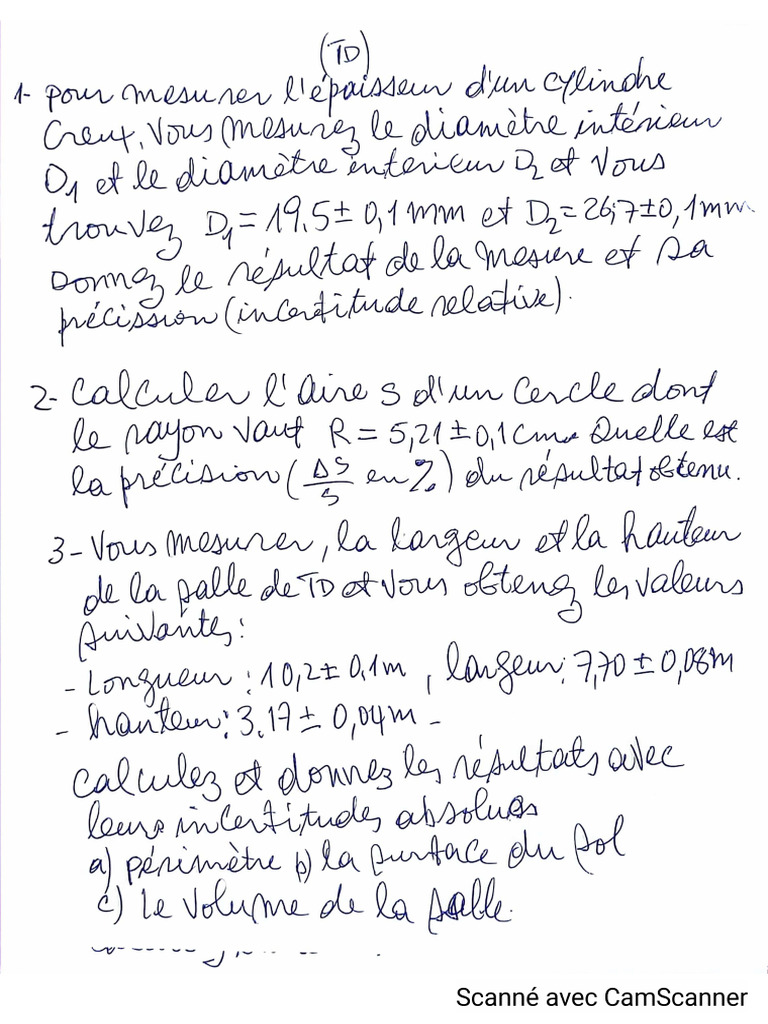 (TD)
1- Pour mesurer l'épaisseur d'un cylindre
Creux, vous mesurez le diamètre intérieur
D1 et le diamètre interieur D2 et vous
trouvez D1 = 19.5 ± 0,1 mm et D2 = 26,7 ± 0,1 mm.
Donnez le résultat de la mesure et sa
précission (incertitude relative).
2- Calculer l'aire S d'un cercle dont
le rayon vaut R = 5,21 ± 0,1 cm. Quelle est
la précision (ΔS/S en %) du résultat obtenu.
3- Vous mesurer, la largeur et la hauteur
de la salle de TD et vous obtenez les valeurs
suivantes:
- Longueur : 10,2 ± 0,1m , largeur: 7,70 ± 0,08m
- hauteur: 3.17 ± 0,04m -
Calculez et donnez les résultats avec
leurs incertitudes absolues
a) périmètre b) la surface du sol
c) Le volume de la salle.
Scanné avec CamScanner